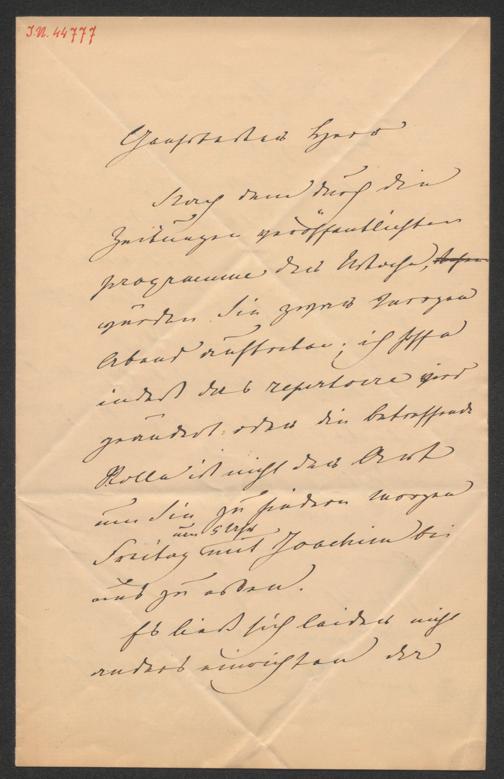 I.N. 44777
Geehrtester Herr
Nach dem durch die
Zeitungen veröffentlichten
programme der Woche,
würden Sie zwar morgen
Abend auftreten; ich hoffe
indeß das repertoire wird
geändert, oder die betreffende
Rolle ist nicht der Art
um Sie zu hindern morgen
um 5 Uhr
Freitag mit Joachim bei
uns zu essen.
Es ließ sich leider nicht
anders einrichten der